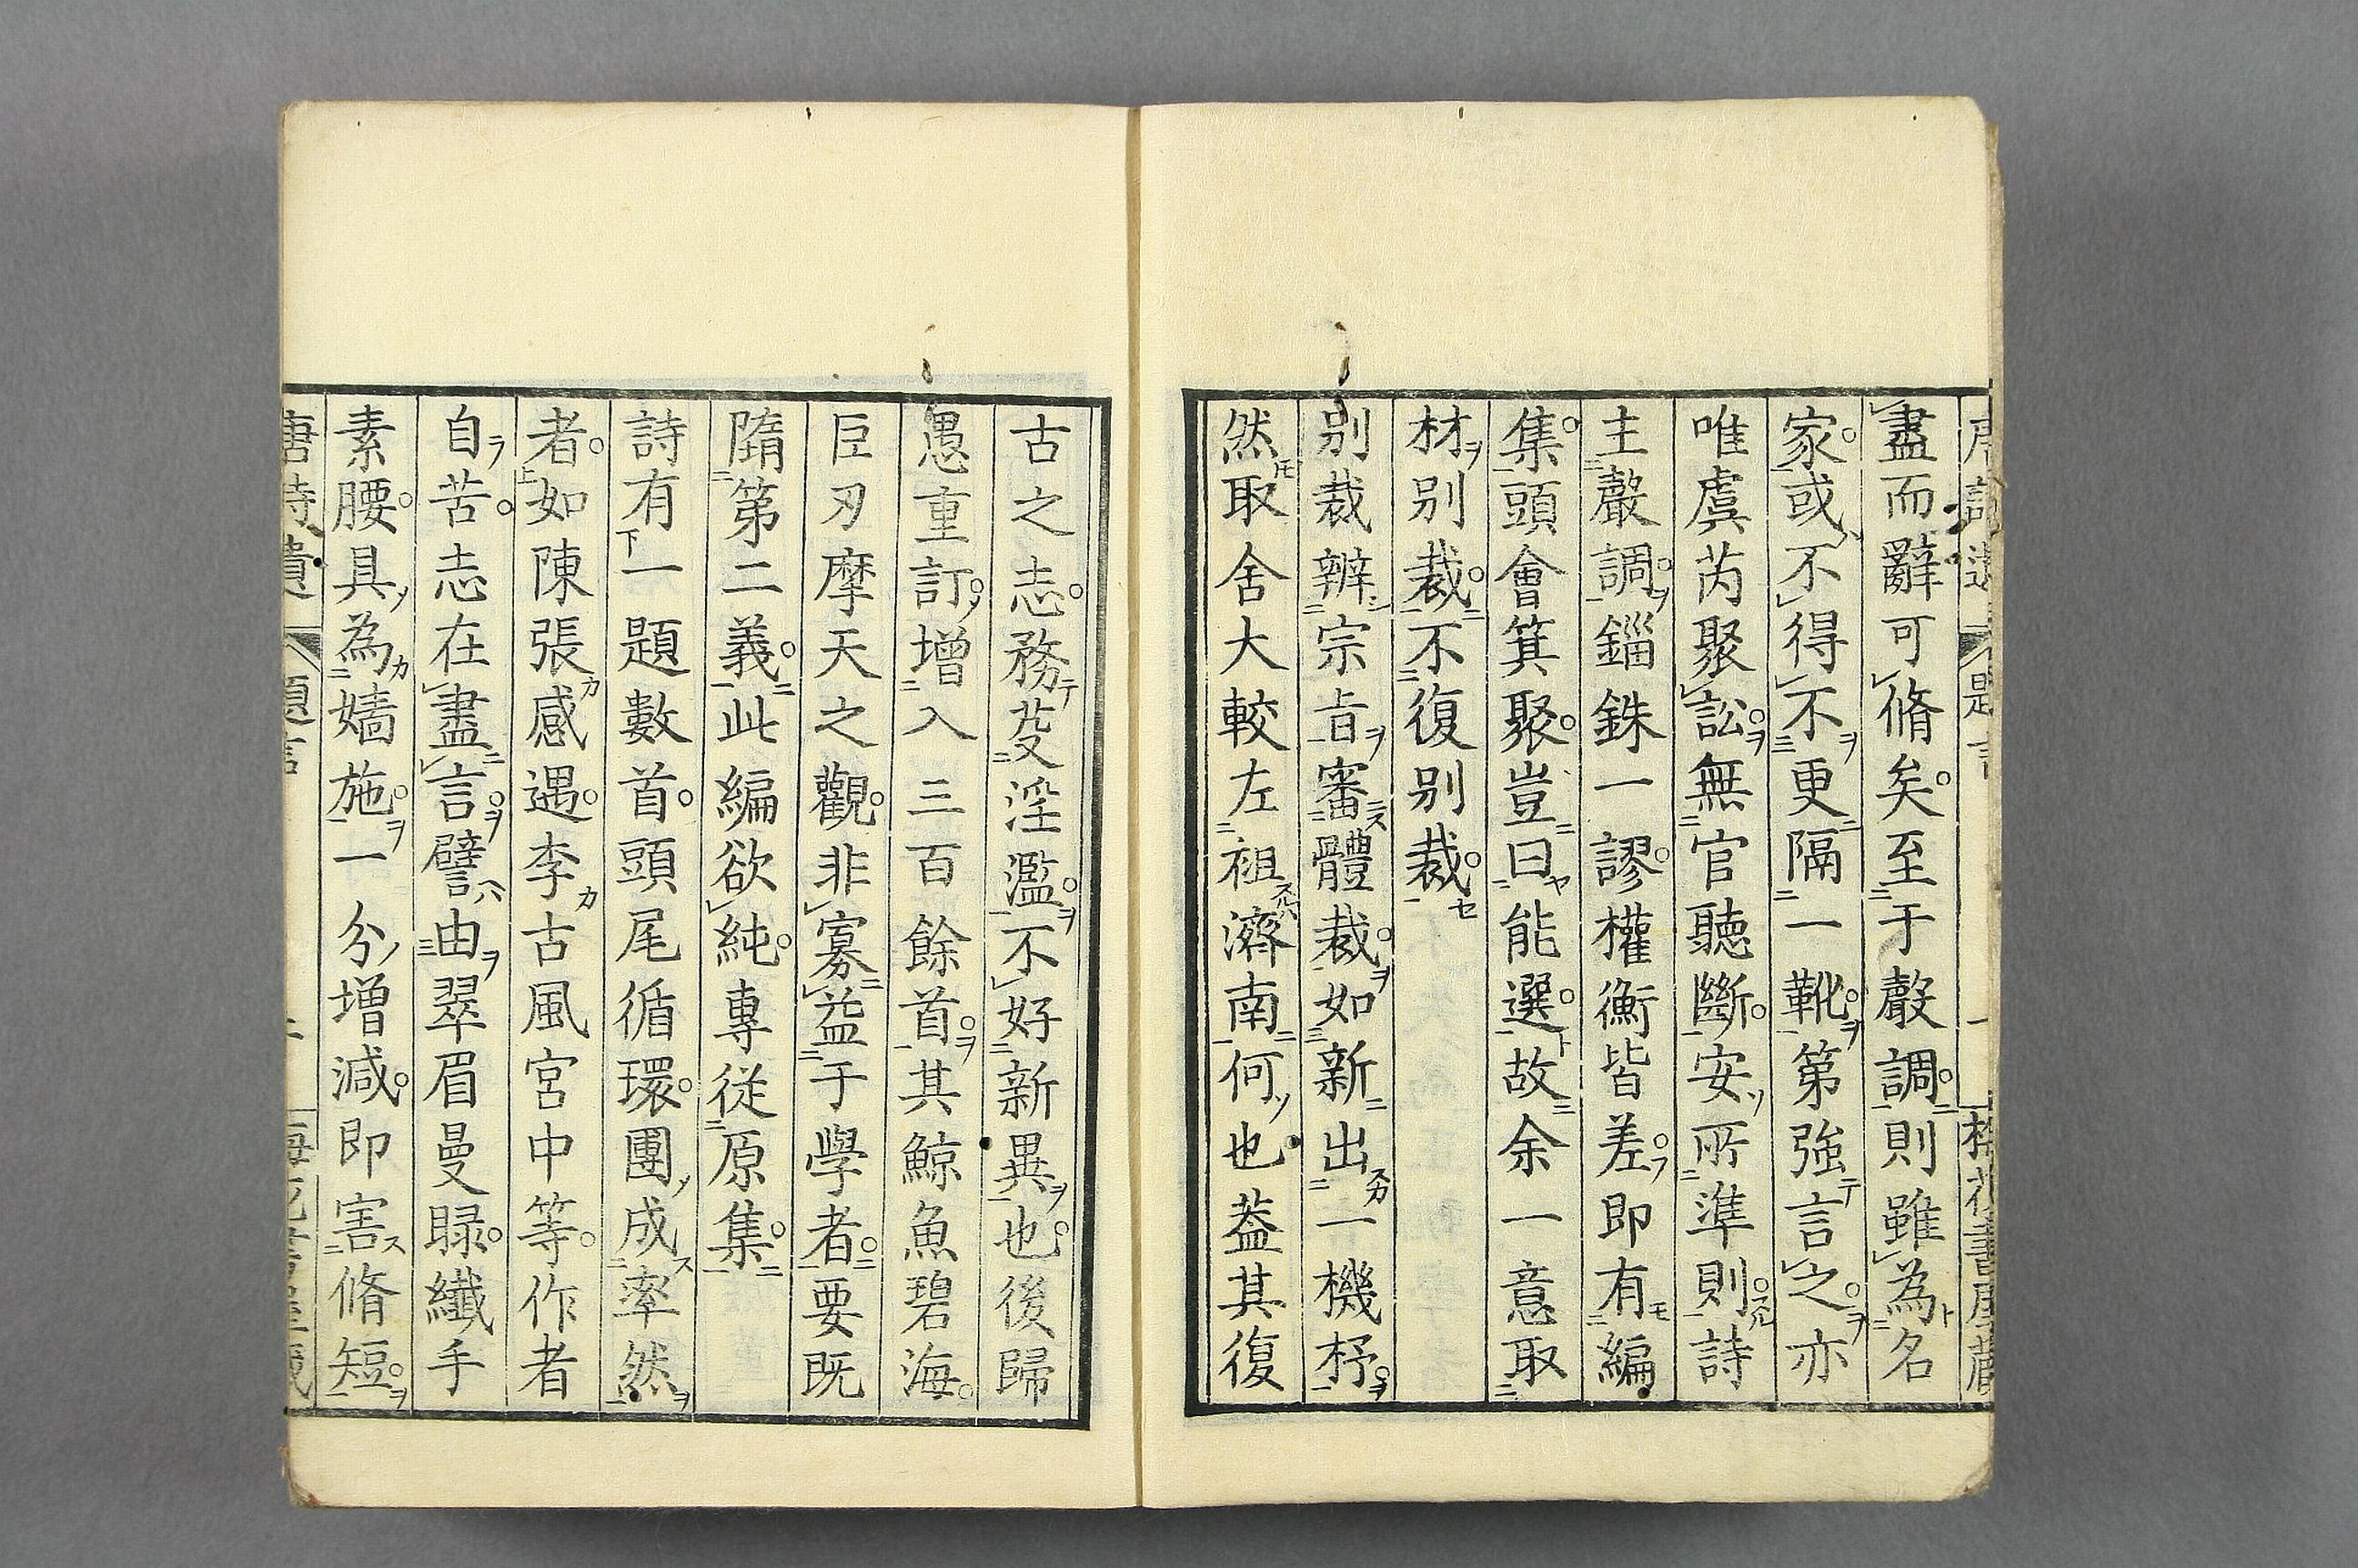 盡而辭可脩矣至于聲調則雖為名
家或不得不更隔一靴第強言之亦
唯虞芮聚訟無官聽斷安所準則詩
主聲調錙銖一謬權衡皆差即有編
集頭會箕聚豈曰能選故余一意取
材別裁不復別裁
別裁辨宗旨審體裁如新出一機杼
然取舍大較左祖濟南何也葢其復
古之志務芟淫濫不好新異也後歸
愚重訂增入三百餘首其鯨魚碧海
巨刃摩天之觀非寡益于學者要既
隋第二義此編欲純專從原集
詩有一題數首頭尾循環團成率然
者如陳張感遇李古風宮中等作者
自苦志在盡言譬由翠眉曼睩纖手
素腰具為嫱施一分增減即害脩短
唐詩遺
題言